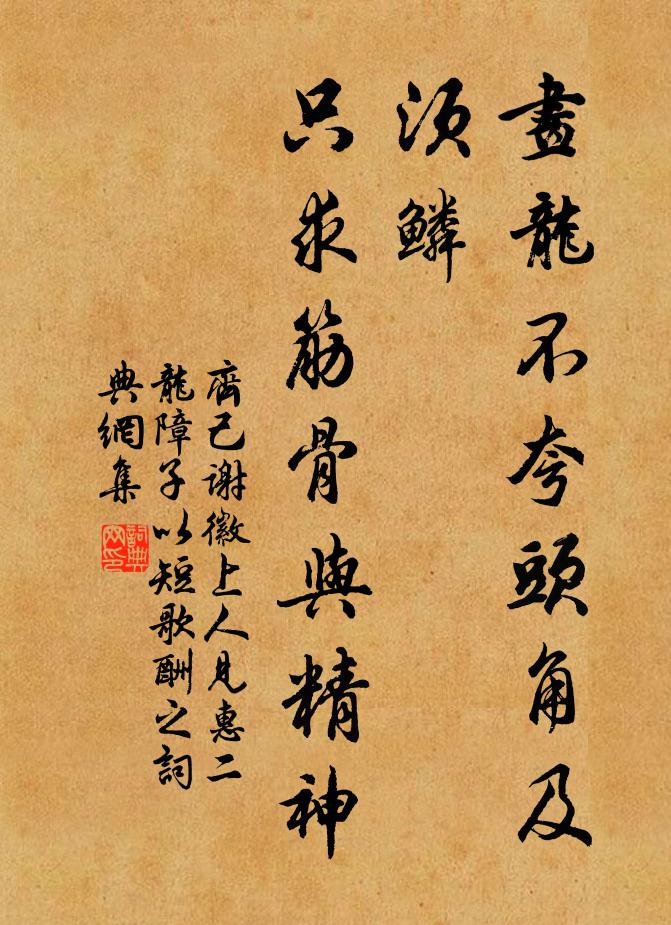 畫龍不夸頭角及
須鱗
只求筋骨與精神
齊己谢徽上人見惠二
龍障子以短歌酬之詞
典網集
詞典
网印